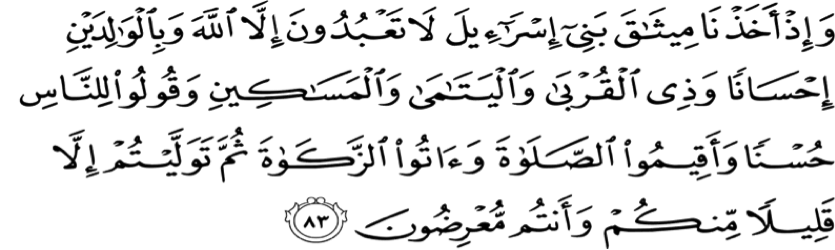 وَإِذْ أَخَذْنَا مِيثَـٰقَ بَنِىٓ إِسْرَٰٓءِيلَ لَا تَعْبُدُونَ إِلَّا ٱللَّهَ وَبِٱلْوَٰلِدَيْنِ
إِحْسَانًا وَذِى ٱلْقُرْبَىٰ وَٱلْيَتَـٰمَىٰ وَٱلْمَسَـٰكِينِ وَقُولُوا۟ لِلنَّاسِ
حُسْنًا وَأَقِيمُوا۟ ٱلصَّلَوٰةَ وَءَاتُوا۟ ٱلزَّكَوٰةَ ثُمَّ تَوَلَّيْتُمْ إِلَّا
قَلِيلًا مِّنكُمْ وَأَنتُم مُّعْرِضُونَ ٨٣